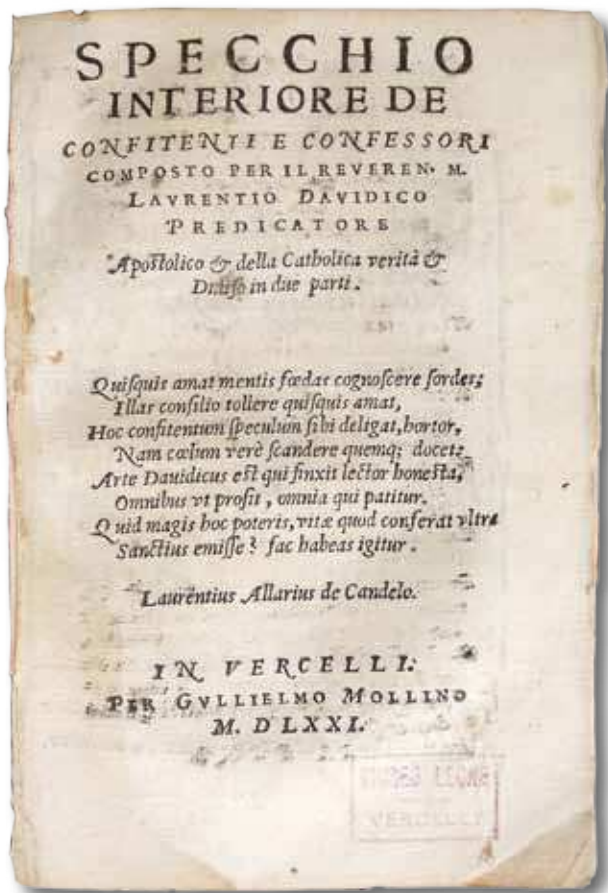 SPECCHIO
INTERIORE DE
CONFITENTI E CONFESSORI
COMPOSTO PER IL REVEREN. M.
LAVRENTIO DAVIDICO
PREDICATORE
Apoſtolico & della Catholica verità &
Diuiſo in due parti.
Quiſquis amat mentis fœdas cognoſcere ſordes;
Illas conſilio tollere quiſquis amat,
Hoc confitentum ſpeculum ſibi deligat, hortor,
Nam cœlum verè ſcandere quemq; docet:
Arte Dauidicus eſt qui finxit lector honeſta,
Omnibus vt proſit, omnia qui patitur.
Quid magis hoc poteris, vitæ quod conferat vltra
Sanctius emiſſe? fac habeas igitur.
Laurẽtius Allarius de Candelo.
IN VERCELLI.
PER GVLLIELMO MOLLINO
M. DLXXI.
VERCELLI